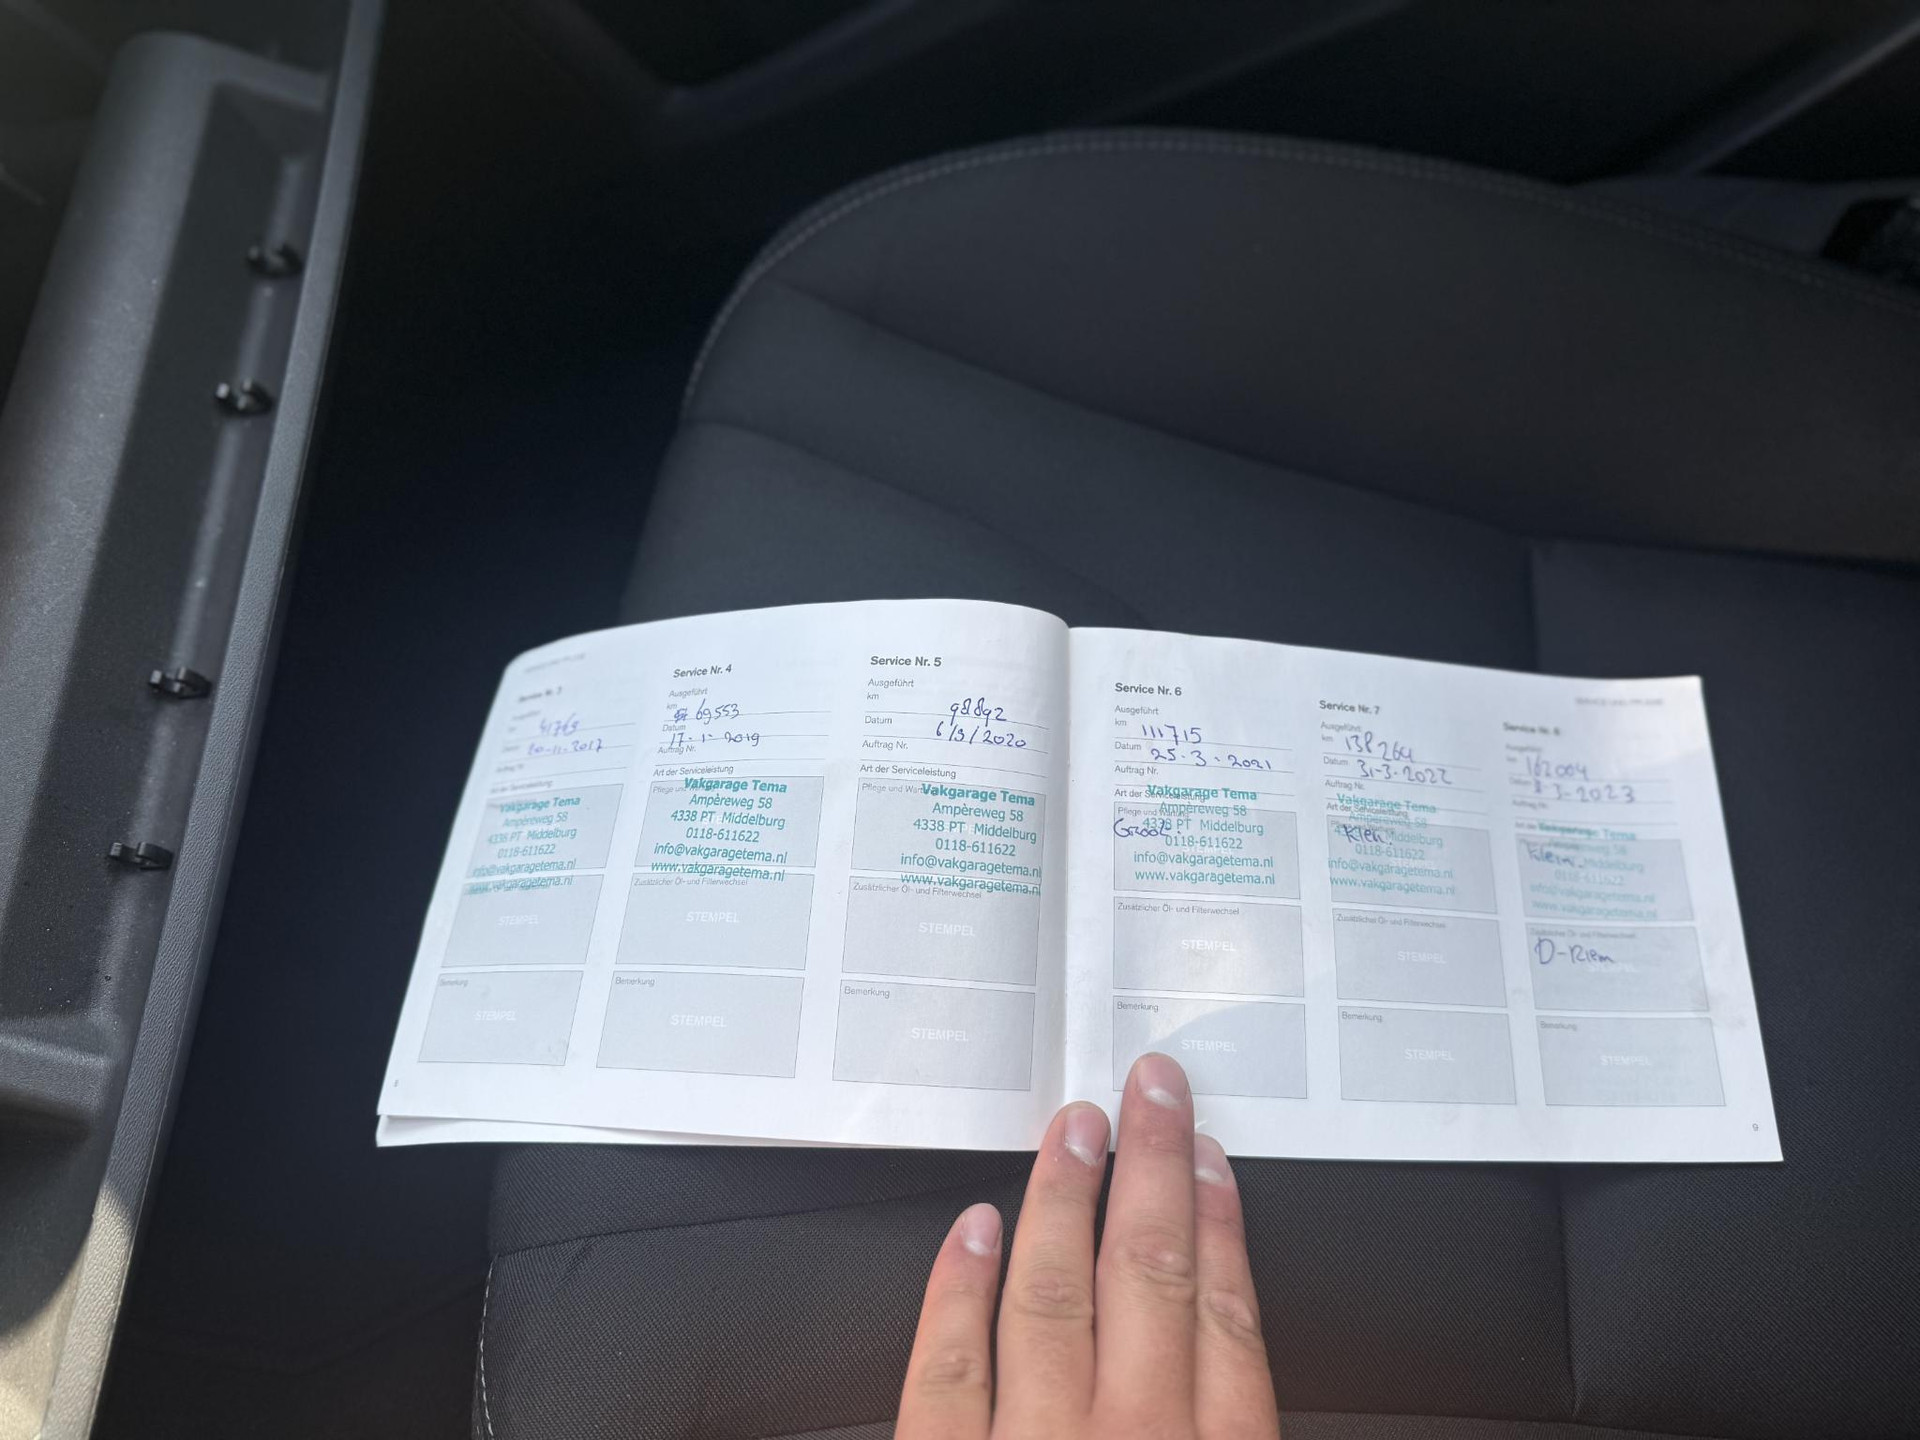 Service Nr. 3
41769
20-11-2017
Art der Serviceleistung
Vakgarage Tema
Ampèreweg 58
4338 PT Middelburg
0118-611622
info@vakgaragetema.nl
www.vakgaragetema.nl
STEMPEL
Bemerkung
STEMPEL
8
Service Nr. 4
Ausgeführt
km 69553
Datum 17-1-2019
Auftrag Nr.
Art der Serviceleistung
Vakgarage Tema
Ampèreweg 58
4338 PT Middelburg
0118-611622
info@vakgaragetema.nl
www.vakgaragetema.nl
Zusätzlicher Öl- und Filterwechsel
STEMPEL
Bemerkung
STEMPEL
Service Nr. 5
Ausgeführt
km 98892
Datum 6/3/2020
Auftrag Nr.
Art der Serviceleistung
Pflege und Wartung
Vakgarage Tema
Ampèreweg 58
4338 PT Middelburg
0118-611622
info@vakgaragetema.nl
www.vakgaragetema.nl
Zusätzlicher Öl- und Filterwechsel
STEMPEL
Bemerkung
STEMPEL
Service Nr. 6
Ausgeführt
km 111715
Datum 25-3-2021
Auftrag Nr.
Art der Serviceleistung
Pflege und Wartung
Vakgarage Tema
Ampèreweg 58
4338 PT Middelburg
Groot.
0118-611622
info@vakgaragetema.nl
www.vakgaragetema.nl
Zusätzlicher Öl- und Filterwechsel
STEMPEL
Bemerkung
STEMPEL
Service Nr. 7
Ausgeführt
km 138264
Datum 31-3-2022
Auftrag Nr.
Art der Serviceleistung
Vakgarage Tema
Ampèreweg 58
4338 PT Middelburg
0118-611622
info@vakgaragetema.nl
www.vakgaragetema.nl
Zusätzlicher Öl- und Filterwechsel
STEMPEL
Bemerkung
STEMPEL
SERVICE UND PFLEGE
Service Nr. 8
Ausgeführt
km 162004
3-2023
Auftrag Nr.
Vakgarage Tema
Klein Middelburg
0118-611622
info@vakgaragetema.nl
www.vakgaragetema.nl
Zusätzlicher Öl- und Filterwechsel
D-Riem
STEMPEL
Bemerkung
STEMPEL
9